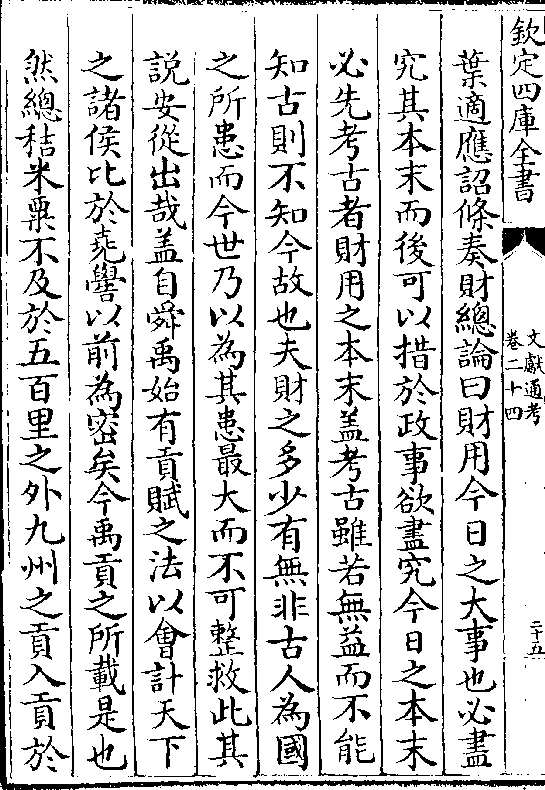 欽定四庫全書
文獻通考
卷二十四
二十五
葉適應詔條奏財總論曰財用今日之大事也必盡
究其本末而後可以措於政事欲盡究今日之本末
必先考古者財用之本末盖考古雖若無益而不能
知古則不知今故也夫財之多少有無非古人為國
之所患而今世乃以為其患最大而不可整救此其
説安從出哉盖自舜禹始有貢賦之法以會計天下
之諸侯比於堯嚳以前為宻矣今禹貢之所載是也
然總秸米粟不及於五百里之外九州之貢入貢於